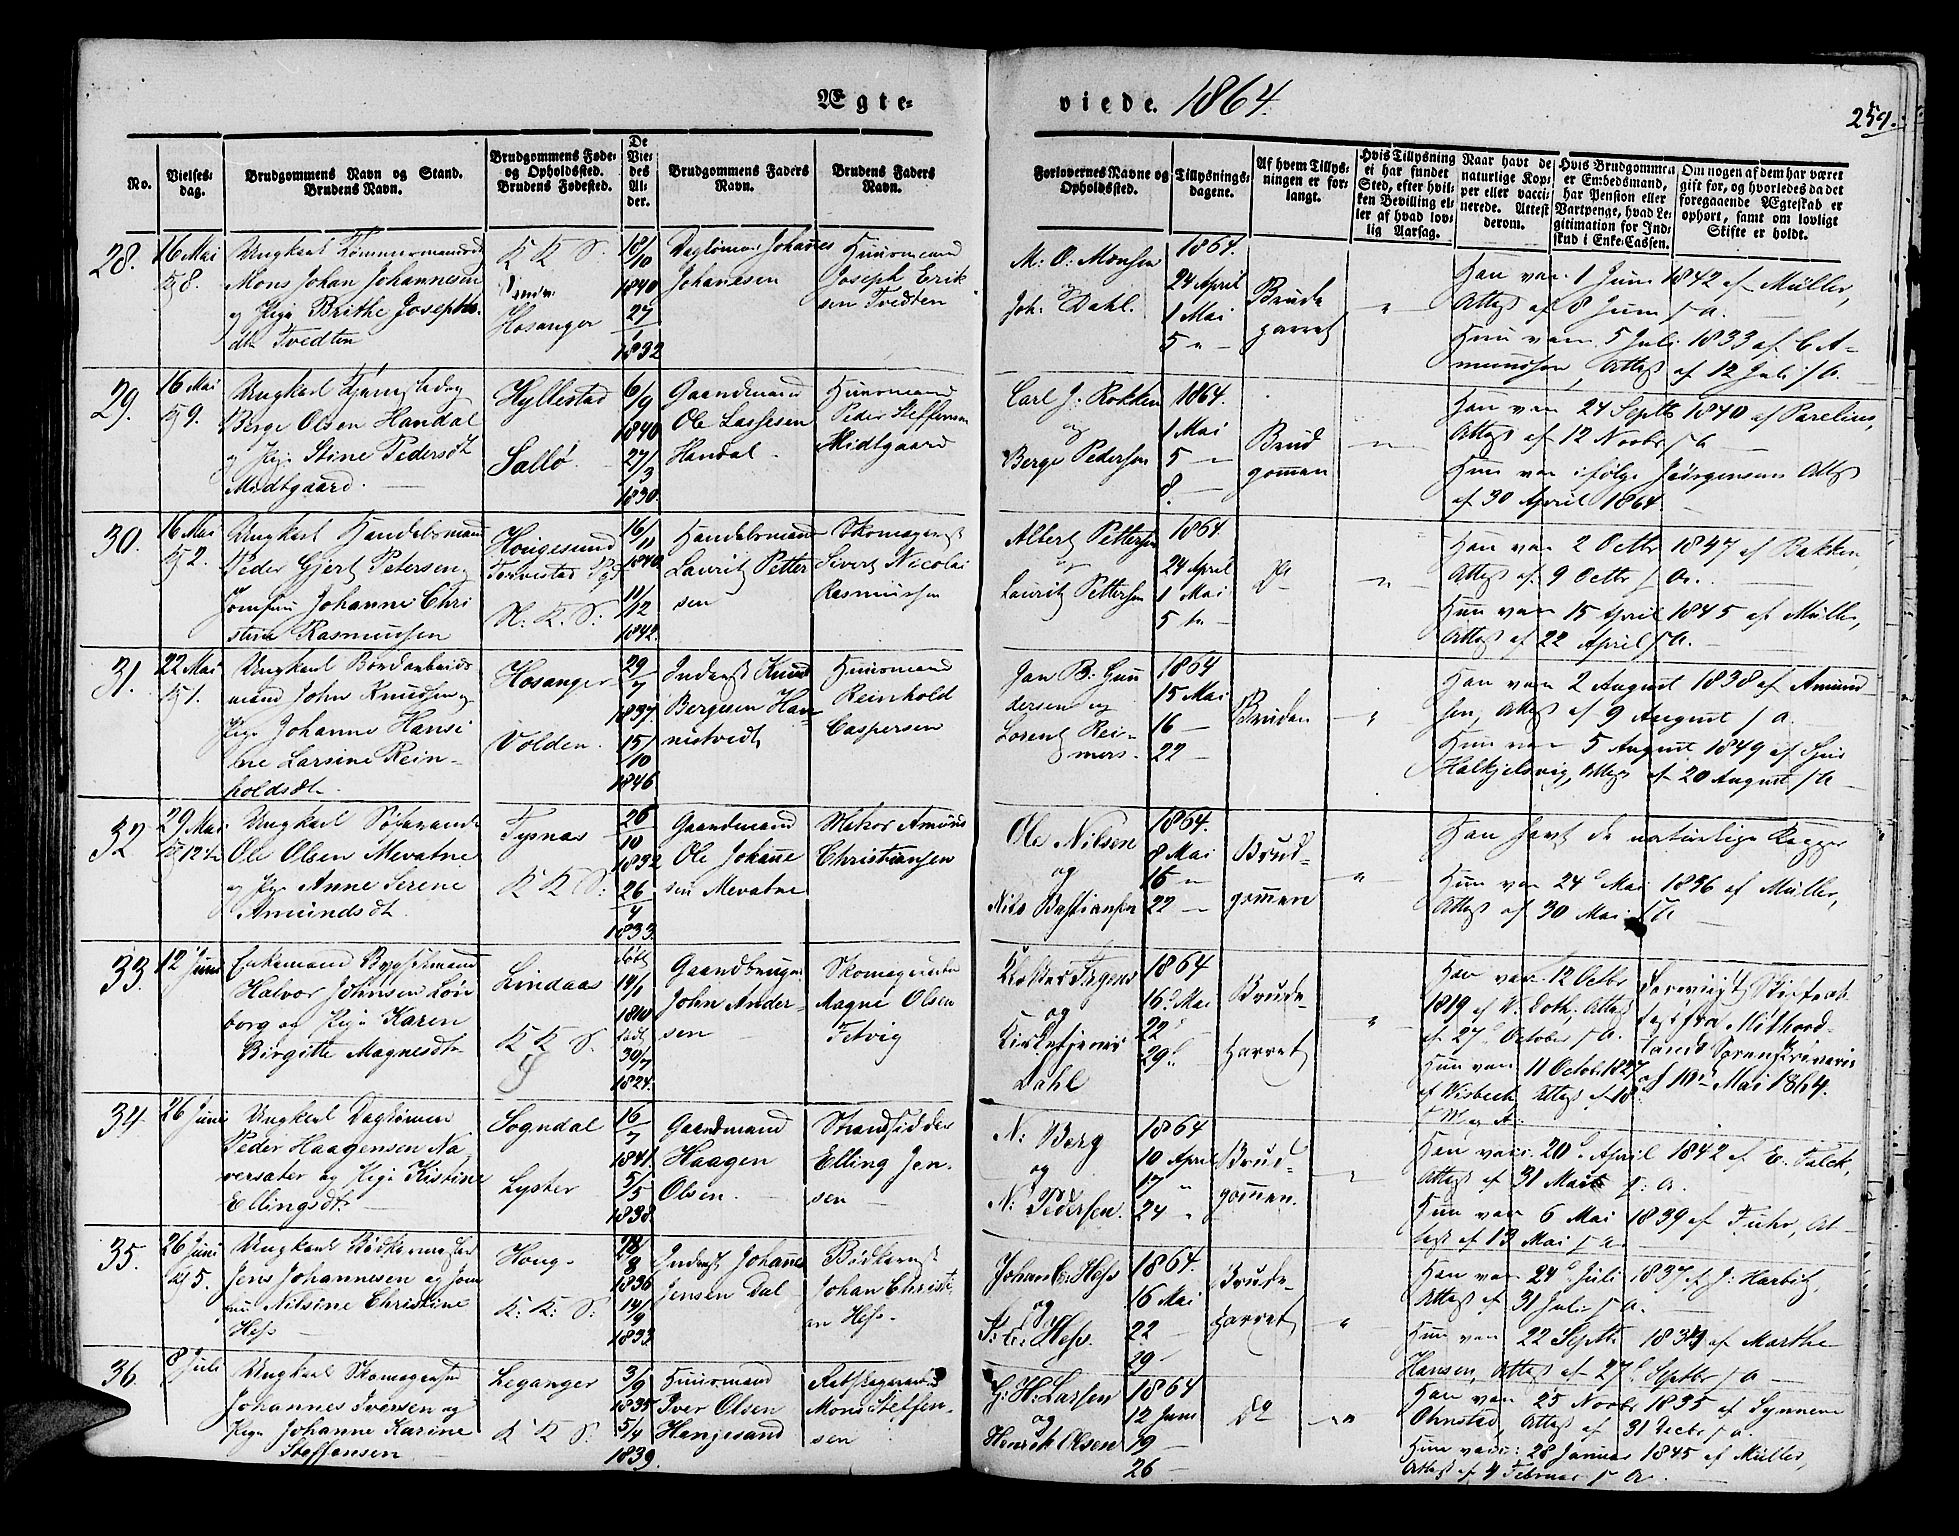 Ægte-
viede. 1864.
259.
No.
Vielses-
dag.
Brudgommens Navn og Stand.
Brudens Navn.
Brudgommens Føde-
og Opholdssted.
Brudens Fødested.
De
Vie-
des
Al-
der.
Brudgommens Faders
Navn.
Brudens Faders
Navn.
Forlovernes Navne og
Opholdssted.
Tillysnings-
dagene.
Af hvem Tillys-
ningen er for-
langt.
Hvis Tillysning
ei har fundet
Sted, efter hvil-
ken Bevilling el-
ler af hvad lov-
lig Aarsag.
Naar havt de
naturlige Kop-
per eller vacci-
nerede. Attest
derom.
Hvis Brudgommen
er Embedsmand,
har Pension eller
Vartpenge, hvad Le-
gitimation for Ind-
skud i Enke-Cassen.
Om nogen af dem har været
gift før, og hvorledes da det
foregaaende Ægteskab er
ophørt, samt om lovligt
Skifte er holdt.
28.
16 Mai
Kl 8.
Ungkarl Tømmermand
Mons Johan Johannesen
og Pige Brithe Josephs-
dtr Tvedten
K K S.
Hosanger
18/10
1840
27/1
1832
Daglønner Johanes
Johanesen
Huusmand
Joseph Erik
sen Tvedten
M: O: Monsen
og
Joh: Dahl.
1864.
24 April
1 Mai
5 " -
Brude
parret
"
Han vac. 1 Juni 1842 af Müller,
Attest af 8 Juni s A.
Hun vac. 5 Juli 1833 af C A-
mundsen, Attest af 12 Juli s A.
29.
16 Mai
Kl 9.
Ungkarl
Berge Olsen Handal
og Pige Stine Pedersdt
Midtgaard.
Hyllestad
Sollø.
6/9
1840
27/3
1830.
Gaardmand
Ole Lassesen
Handal.
Huusmand
Peder Steffensen
Midtgaard
Carl J. Rokken
og
Berge Pedersen
1864.
1 Mai
5 -
8. -
Brud
gommen
"
Han vac 24 Septb 1840 af Parelius,
Attest af 12 Novbr s A
Hun vac ifølge Jørgensens Attest
af 30 April 1864.
30.
16 Mai
Kl 2.
Ungkarl Handelsmand
Peder Gjert Petersen
Jomfru Johanne Chri
stine Rasmussen
Hougesund
Torvestad Pgd
N. K. S:
16/11
1840
11/12
1842.
Handelsmand
Lauritz Petter
sen
Skomagermst
Sivert Nicolai
Rasmussen
Albert Pettersen
og
Lauritz Pettersen
1864.
24 April
1 Mai
5 "
Do
"
Han vac 2 Octbr 1847 af Bakken
Attest af 9 Octbr s A.
Hun vac 15 April 1845 af Müller,
Attest af 22 April s A.
31.
22 Mai
Kl 1.
Ungkarl Bordarbeids
mand John Knudsen og
Pige Johanne Hansi
ne Larsine Rein-
holdsdtr.
Hosanger
Volden.
29/7
1837
15/10
1846
Inderst Knud
Bergesen Han-
nistvedt
Huusmand
Reinhold
Caspersen
Jan B. Gun
dersen og
Lorentz Rei-
mers.
1864
15 Mai
16 -
22 -
Bruden
"
Han vac 2 August 1838 af Amund
sen, Attest af 9 August s A.
Hun vac 5 August 1849 af
Halkjelsvig, Attest af 20 August s A
32
29 Mai
Ungkarl
Ole Olsen Mevatne
og Pige Anne Serene
Amundsdt.
Tysnæs
K K S:
26/10
1832
26/4
1833.
Gaardmand
Ole Johanne
sen Mevatne
Matros Amund
Christiansen
Ole Nilsen
og
Nils Bastiansen
1864.
8 Mai
16 "
22 -
Brud-
gommen
"
Han havt de naturlige Kopper
Hun vac 24 Mai 1836 af Müller,
Attest af 30 Mai s A
33.
12 Juni
Enkemand Bygselmand
Halvor Johnsen Løn
borg og Pige Karen
Birgitte Magnesdtr
Lindaas
K K S.
døbt
1810
født
30/7
1824.
Gaardbruger
John Ander-
sen
Skomagermster
Magne Olsen
Tetvig
Klokker Fagens
og
Kirketjener
Dahl
1864
16 Mai
22
29
Brude
parret
"
Han vac 12 Octbr
1819 af W. Doth, Attest
af 27 October s A.
Hun vac 11 Octob 1827
af Wisbech, Attest af 18
M og A.
Foreviist Skifteat-
test fra Midthord-
lands Sorenskriveri
af 10 Mai 1864.
34.
26 Juni
Ungkarl Daglønner
Peder Haagensen Na
versæter og Pige Kistine
Ellingsdtr
Sogndal
Lyster
16/7
1841.
5/5
1838.
Gaardmand
Haagen
Olsen.
Strandsidder
Elling Jen-
sen
N: Berg
og
N: Pedersen
1864
10 April
17 "
24 "
Brud-
gommen.
"
Han vac: 20 April 1842 af E. Falck,
Attest af 31 Marts s: A.
Hun vac 6 Mai 1839 af Fuhr, At-
test af 13 Mai s A
35.
26 Juni
Kl 5.
Ungkarl Bødkermester
Jens Johannesen og Jom
fru Nilsine Christine
Hess
Houg.
K. K: S:
28/8
1836
14/9
1833
Inderst Johannes
Jensen Dal
Bødkermst
Johan Christi-
an Hess.
Johan C: Hess
og
S: C: Hess.
1864.
16 Mai
22 -
29 -
Brude-
parret
"
Han vac 24 Juli 1837 af J: Harbitz,
Attest af 31 Juli s A.
Hun vac 22 Septb 1834 af Marthe
Hansen, Attest af 27 Septbr s A
36.
8 Juli
Ungkarl Skomagersvd
Johannes Iversen og
Pige Johanne Karine
Steffensen
Leganger
K K S.
3/9
1835
5/4
1839.
Huusmand
Iver Olsen
Henjesand
Mons Steffen-
sen
G: H: Larsen
og
Henrik Olsen
1864
12 Juni
19 -
26 -
Do
"
Han vac 25 Novbr 1835 af Synneve
Ohnstad, Attest af 31 Decbr s A.
Hun vac: 28 Januar 1845 af Müller,
Attest af 4 Februar s A.